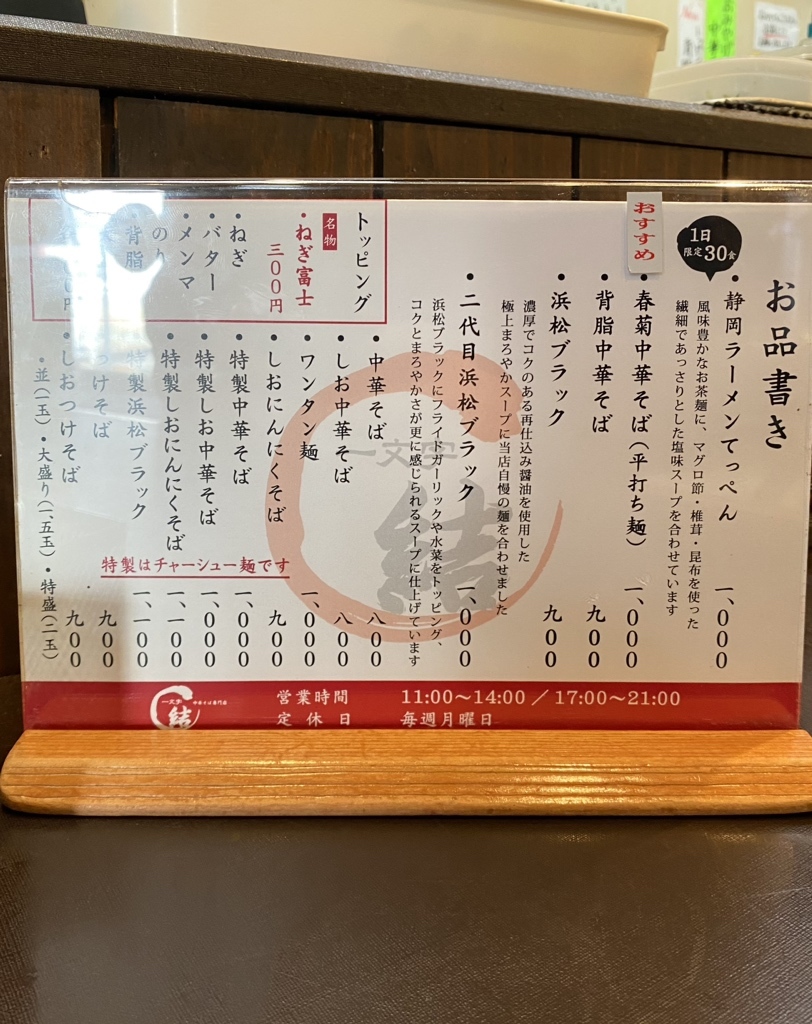 お品書き
1日
限定30食
・静岡ラーメンてっぺん 一、000
風味豊かなお茶麺に、マグロ節・椎茸・昆布を使った
繊細であっさりとした塩味スープを合わせています
おすすめ
・春菊中華そば(平打ち麺) 一、000
・背脂中華そば 九00
・浜松ブラック 九00
濃厚でコクのある再仕込み醤油を使用した
極上まろやかスープに当店自慢の麺を合わせました
・二代目浜松ブラック 一、000
浜松ブラックにフライドガーリックや水菜をトッピング、
コクとまろやかさが更に感じられるスープに仕上げています
トッピング
名物
・ねぎ富士
三00円
・ねぎ
・バター
・メンマ
・のり
・背脂
・中華そば 八00
・しお中華そば 八00
・ワンタン麺 一、000
・しおにんにくそば 九00
・特製中華そば 一、000
・特製しお中華そば 一、000
・特製しおにんにくそば 一、一00
・特製浜松ブラック 一、一00
・つけそば 九00
・しおつけそば 九00
特製はチャーシュー麺です
・並(一玉)・大盛り(一、五玉)・特盛(二玉)
一文字
結
一文字
結
中華そば専門店
営業時間 11:00〜14:00 / 17:00〜21:00
定休日 毎週月曜日